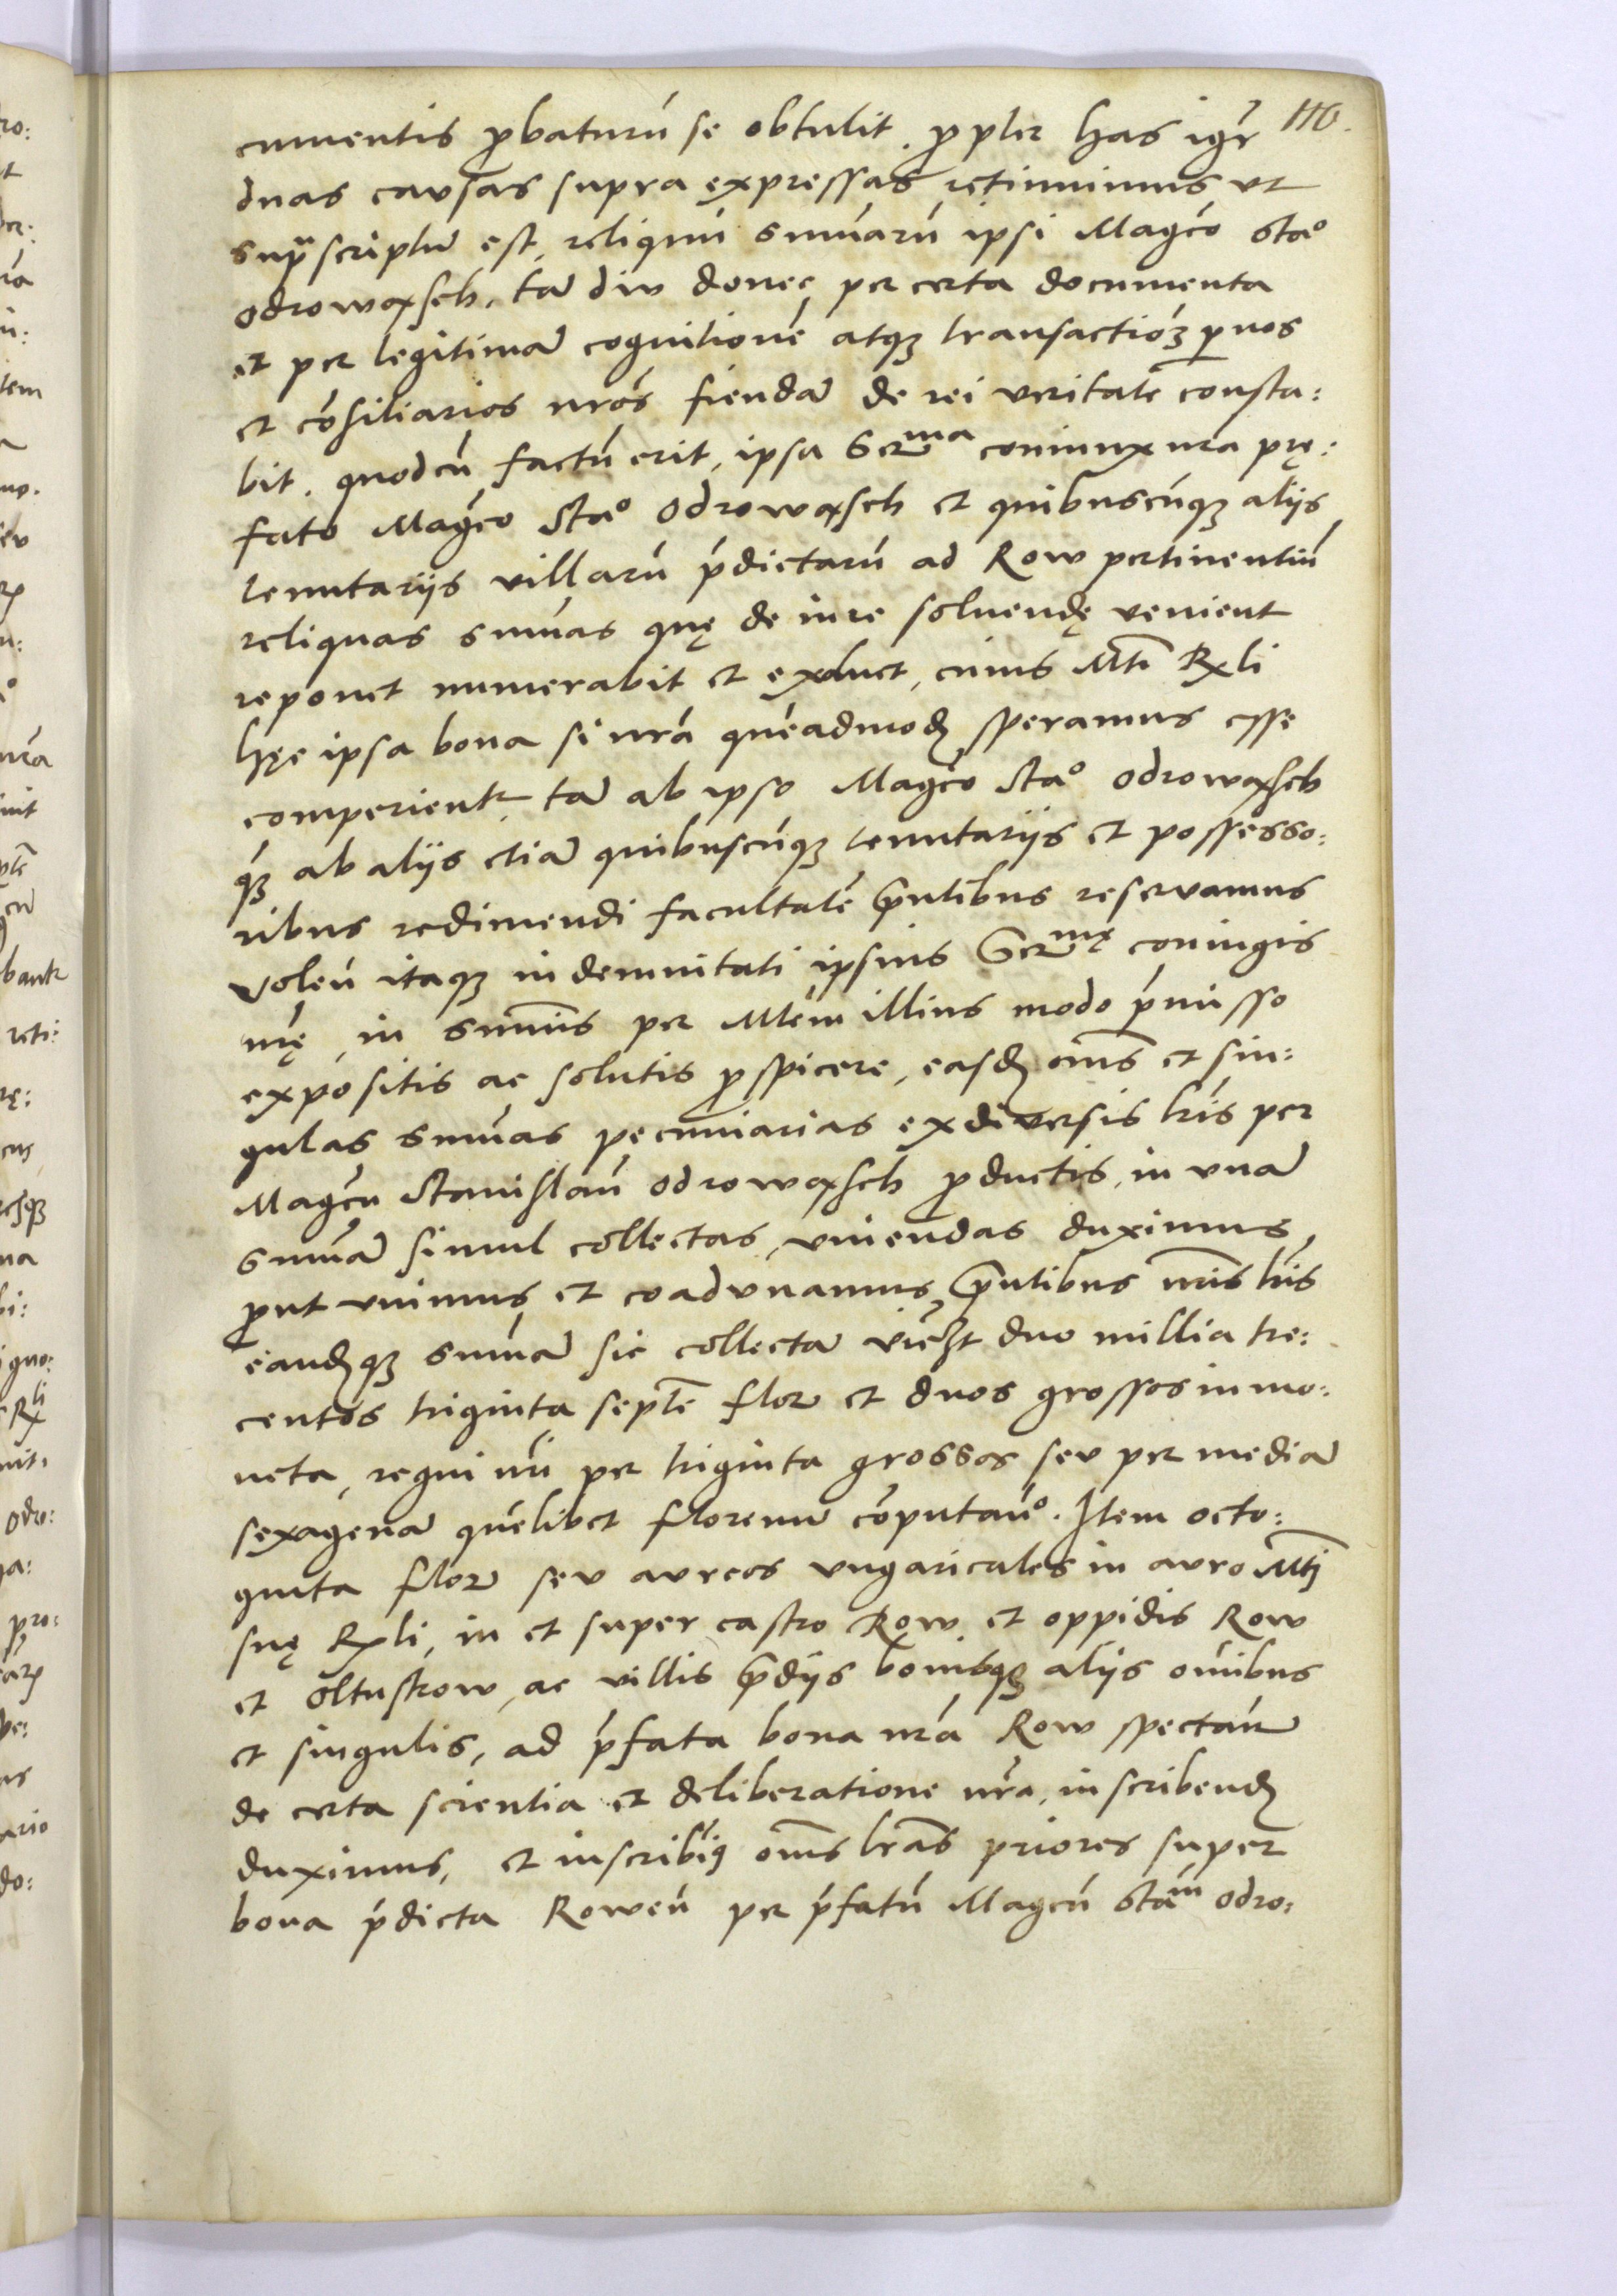 110.
cumentis ꝓbaturú se obtulit. ꝓpter has igr̃
duas causas supra expressas retinuimus vt
supͣscriptū est, reliquú summarú ipsi Magc̃o Staᵒ
Odrowąsch, tā diu donec per certa documenta
et per legitimā cognitioné atqꝫ transactióꝫ ꝑ nos
et cõsiliarios nr̃os fiendā de rei veritatē consta:
bit. quodcú factú erit, ipsa Serᵐᵃ coniunx nr̃a prę:
fato Magc̃o Staᵒ Odrowąsch et quibuscúqꝫ alijs
tenutarijs villarú p̃dictarú ad Row pertinentiú
reliquas sum̃as quę de iure soluendę venient
reponet numerabit et exoluet, cuius Mt̃i Rx̃li
hęc ipsa bona si nr̃a quéadmodꝫ speramus esse
comperient̃, tā ab ipso Magc̃o Staᵒ Odrowąsch
qꝫ ab alijs etiā quibuscúqꝫ tenutarijs et possesso:
ribus redimendi facultatē p̃ntibus reservamus
volen̄ itaqꝫ indemnitati ipsius Serᵐᵉ coniugis
nr̃ę, in sum̃is per Mtém illius modo p̃misso
expositis ac solutis ꝓspicere, easdꝫ om̃s et sin:
gulas sum̃as pecuniarias ex diversis lr̃is per
Magc̃u Stanislaú Odrowąsch ꝓductis, in unā
sum̃ā simul collectas, vniendas duximus,
ꝓut vnimus et coadvnamus p̃ntibus nr̃is lr̃is
eandꝫqꝫ sum̃ā sic collectā vicꝫt duo millia tre:
centos triginta septē flor̃ et duos grossos in mo:
neta, regni nr̃i per triginta grossos seu per mediā
sexagenā quélibet florenū cõputañᵒ. Item octo:
ginta flor̃ seu aureos vngaricales in auro Mt̃i
suę Rx̃li, in et super castro Row et oppidis Row
et Oltustrow, ac villis p̃dijs bonisqꝫ alijs om̃ibus
et singulis, ad p̃fata bona nr̃a Row spectañ
de certa scientia et deliberatione nr̃a, inscribendꝫ
duximus, et inscribim̃ꝰ om̃s lr̃as priores super
bona p̃dicta Roweñ per p̃fatú Magc̃ú Staᵐ Odro: